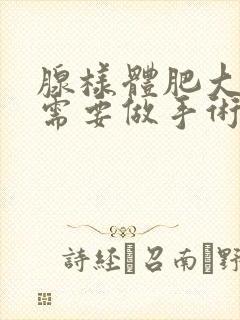 腺樣體肥大
需要做手術
詩經 召南 野